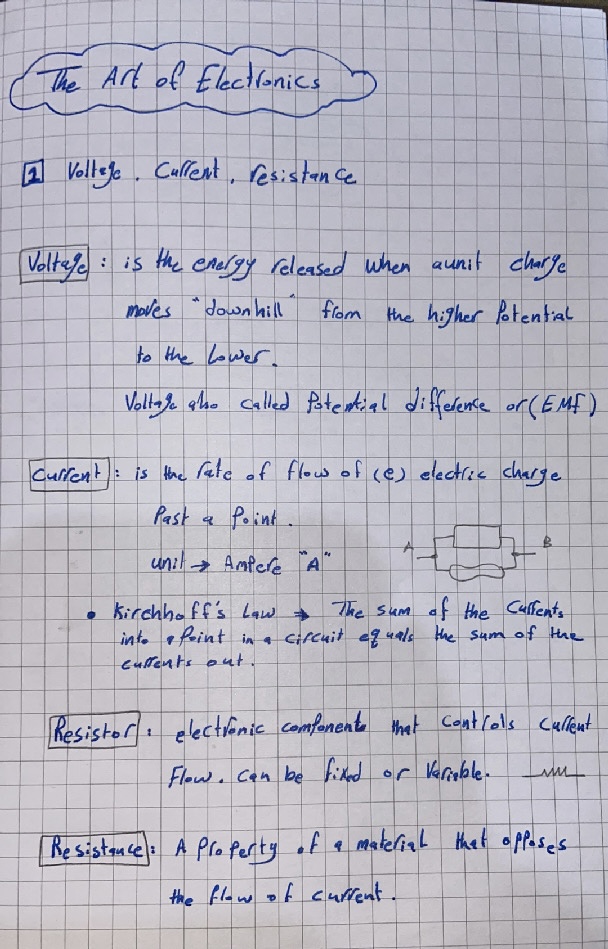 The Art of Electronics
1 Voltage, Current, resistance
Voltage : is the energy released when a unit charge
moves "downhill" from the higher Potential
to the Lower.
Voltage also called Potential difference or (EMf)
Current : is the rate of flow of (e) electric charge
Past a Point.
unit → Ampere "A"
A B
• Kirchhoff's Law → The sum of the Currents
into a Point in a circuit equals the sum of the
currents out.
Resistor : electronic components that Controls Current
Flow. can be fixed or Variable.
Resistance : A Property of a material that opposes
the flow of current.